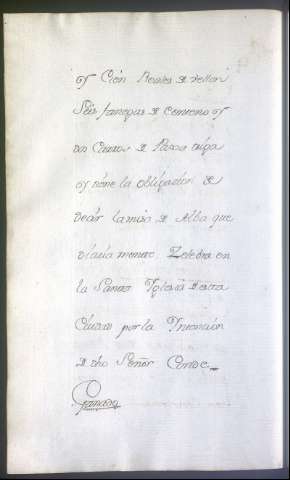 y Cien Reales de vellon
Seis fanegas de Centeno y
dos Carros de Paxa
y tiene la obligacion de
decir la misa de Alba que
diaria mente Zelebra en
la Santa Yglesia de esta
Ciudad por la Yntencion
de dho Señor Conde